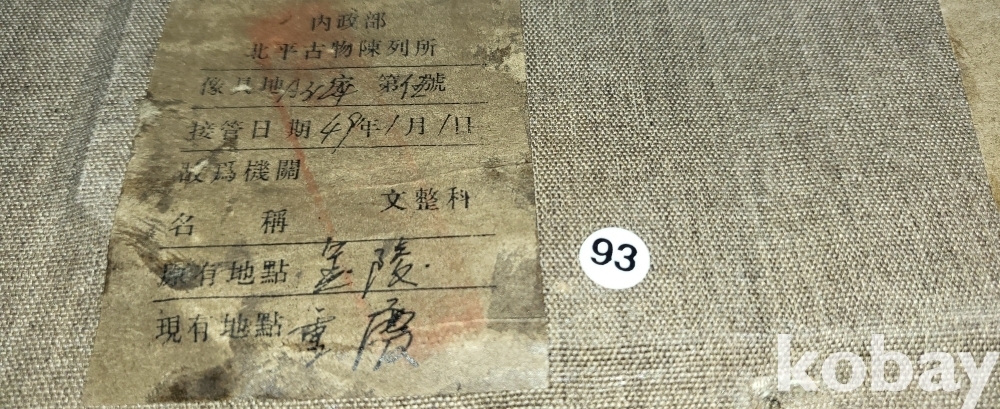 內政部
北平古物陳列所
像具地 字 第12號
接管日期 49年1月1日
改爲機關
文整科
名稱
原有地點 金陵
現有地點 重慶
93
kobay